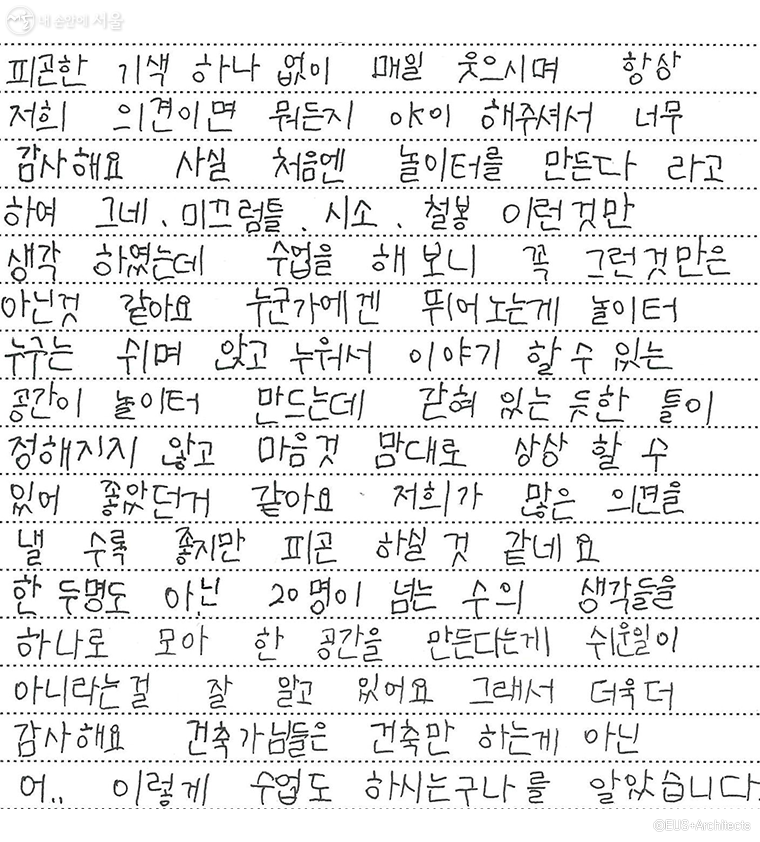 내 손안에 서울
피곤한 기색 하나 없이 매일 웃으시며 항상
저희 의견이면 뭐든지 OK이 해주셔서 너무
감사해요 사실 처음엔 놀이터를 만든다 라고
하여 그네, 미끄럼틀, 시소, 철봉 이런것만
생각 하였는데 수업을 해 보니 꼭 그런것만은
아닌것 같아요 누군가에겐 뛰어노는게 놀이터
누구는 쉬며 앉고 누워서 이야기 할 수 있는
공간이 놀이터 만드는데 갇혀 있는 듯한 틀이
정해지지 않고 마음껏 맘대로 상상 할 수
있어 좋았던거 같아요 저희가 많은 의견을
낼 수록 좋지만 피곤 하실 것 같네요
한 두명도 아닌 20명이 넘는 수의 생각들을
하나로 모아 한 공간을 만든다는게 쉬운일이
아니라는걸 잘 알고 있어요 그래서 더욱더
감사해요 건축가님들은 건축만 하는게 아닌
어.. 이렇게 수업도 하시는구나를 알았습니다.
©EUS+Architects